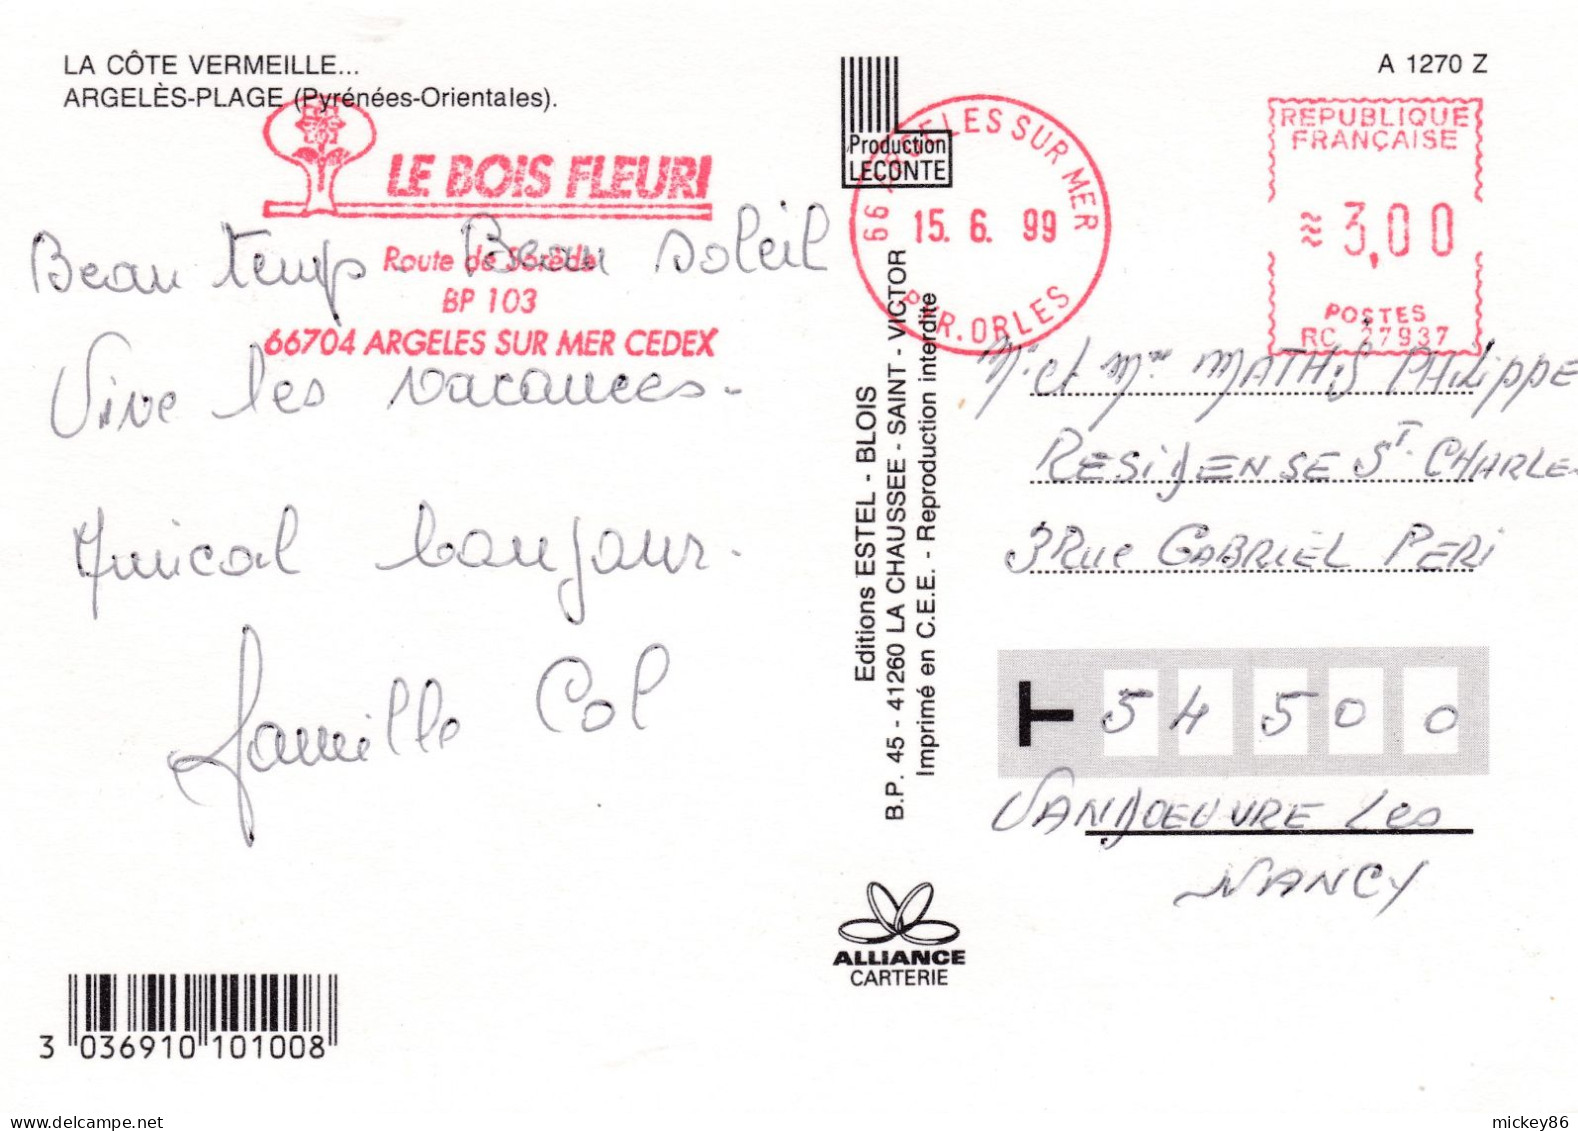 LA CÔTE VERMEILLE...
ARGELÈS-PLAGE (Pyrénées-Orientales).
LE BOIS FLEURI
Route de Sorède
BP 103
66704 ARGELES SUR MER CEDEX
Beau temps - Beau soleil
Vive les vacances -
Amical bonjour -
famille Col
3 036910 101008
Production
LECONTE
66 ARGELES SUR MER
15. 6. 99
PYR. ORLES
Editions ESTEL - BLOIS
B.P. 45 - 41260 LA CHAUSSEE - SAINT - VICTOR
Imprimé en C.E.E. - Reproduction interdite
ALLIANCE
CARTERIE
A 1270 Z
REPUBLIQUE
FRANÇAISE
3,00
POSTES
RC 27937
Mr et Mme MATHIS PHILIPPE
RESIDENSE ST. CHARLES
3 Rue GABRIEL PERI
T 54500
VANDOEUVRE Les
NANCY
delcampe.net
mickey86